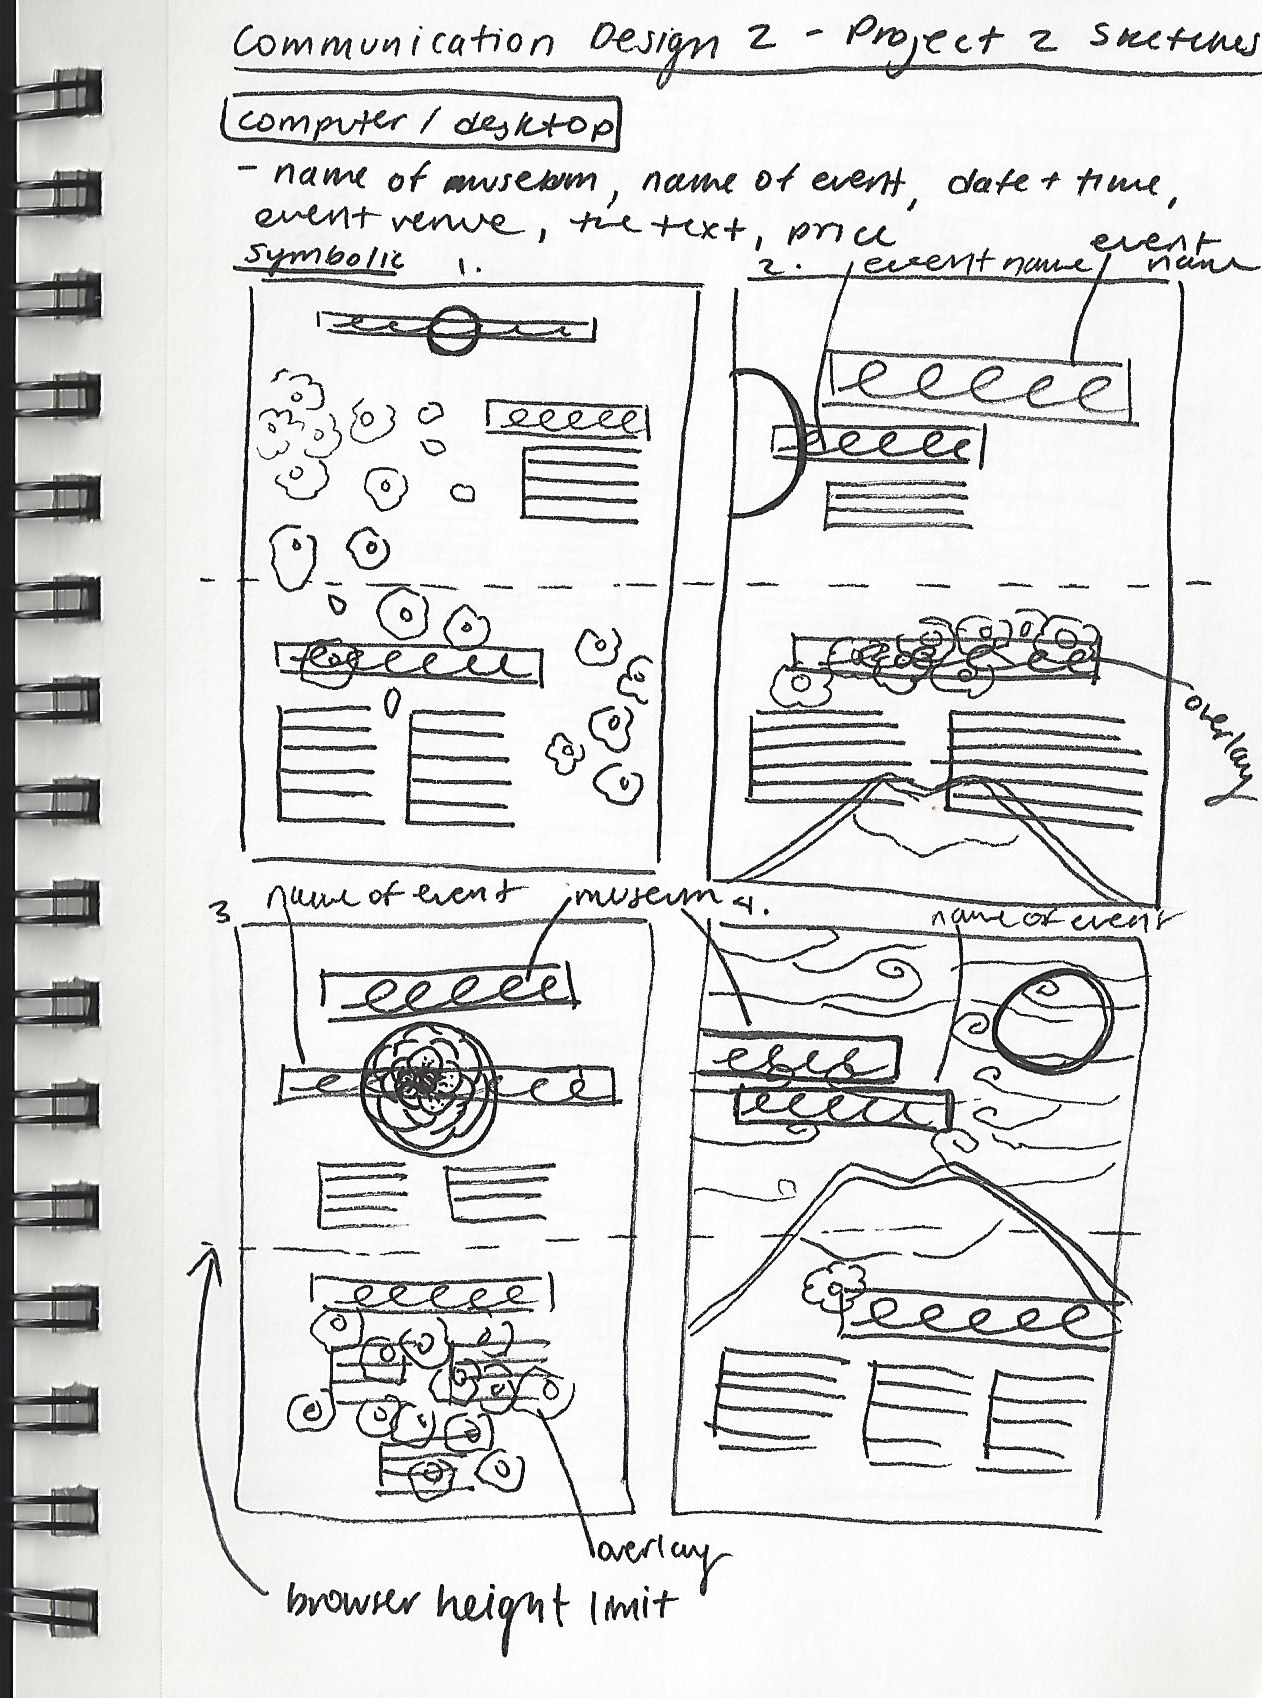 Communication Design 2 - Project 2 Sketches
computer / desktop
- name of museum, name of event, date + time,
event venue, the text, price
symbolic 1.
2. event name
event name
overlay
3 name of event
museum
4. name of event
overlay
browser height limit